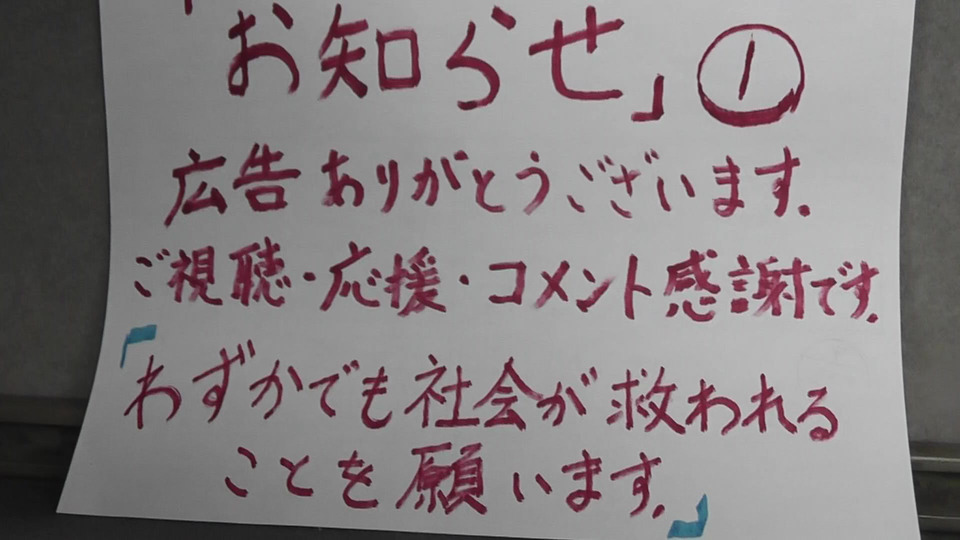 「お知らせ」①
広告ありがとうございます.
ご視聴・応援・コメント感謝です.
「わずかでも社会が救われる
ことを願います.」